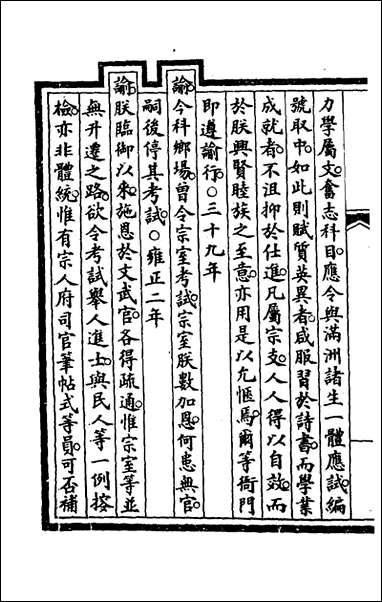 力學屬文奮志科目應令與滿洲諸生一體應試編
號取中如此則賦質英異者咸服習於詩書而學業
成就者不沮抑於仕進凡屬宗支人人得以自效而
於朕興賢睦族之至意亦用是以允愜焉爾等衙門
即遵諭行○三十九年
諭今科鄉場曾令宗室考試宗室朕數加恩何患無官
嗣後停其考試○雍正二年
諭朕臨御以來施恩於文武官各得疏通惟宗室等並
無升遷之路欲令考試舉人進士與民人等一例按
檢亦非體統惟有宗人府司官筆帖式等員可否補